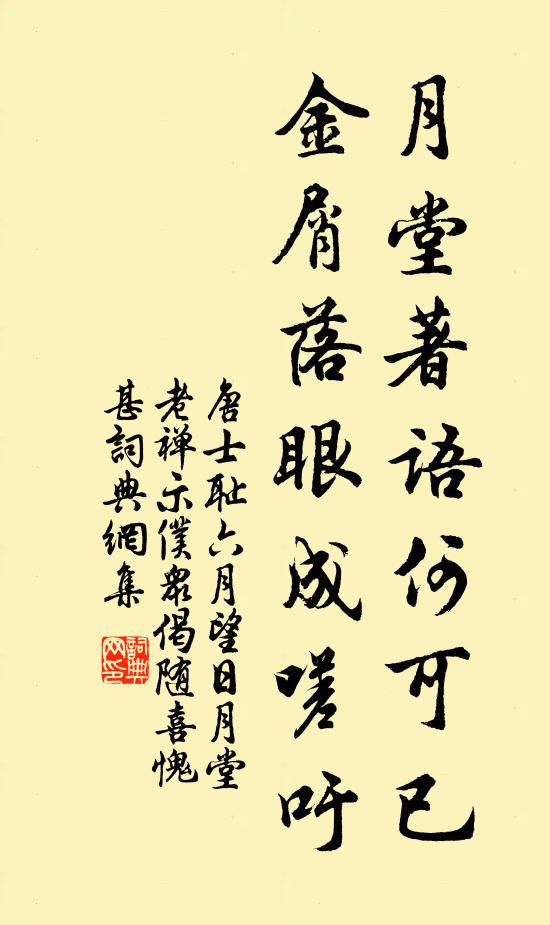 月堂著語何可已
金屑落眼成嗟吁
唐士耻六月望日月堂
老禅示僕衆偈随喜愧
甚詞典網集
詞典网印